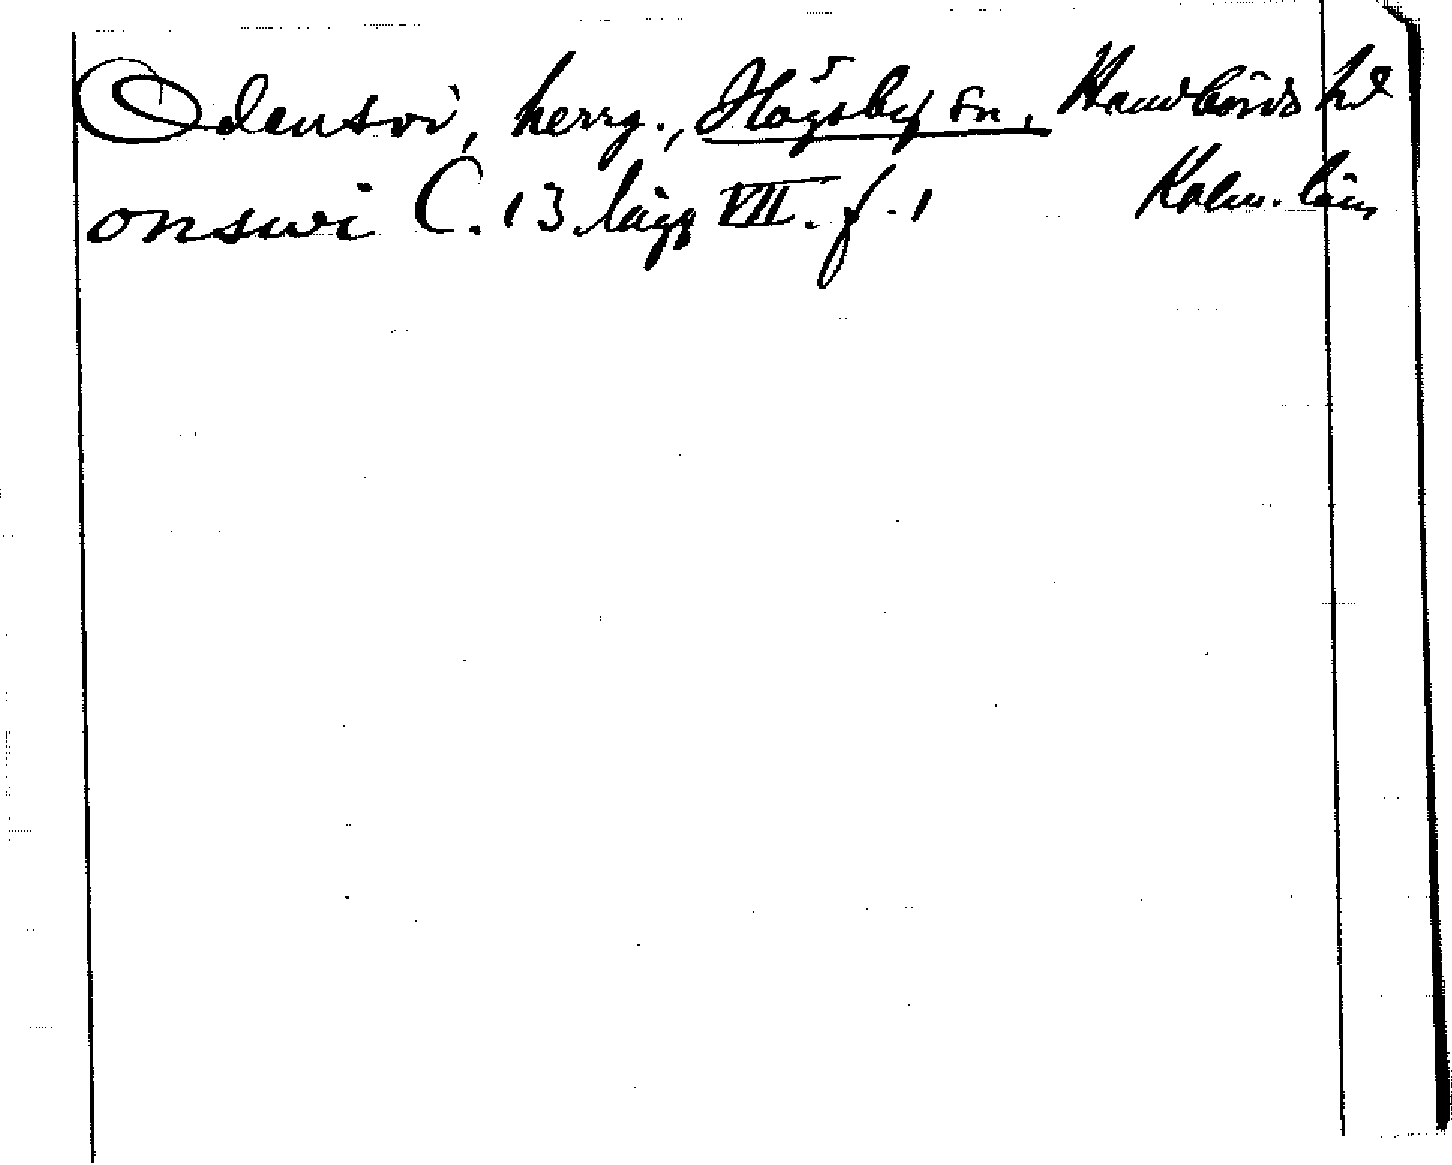 Odensvi, herrg., Högsby sn, Handbörds hd
onswi C. 13 lägg VII. f. 1 Kalm. län